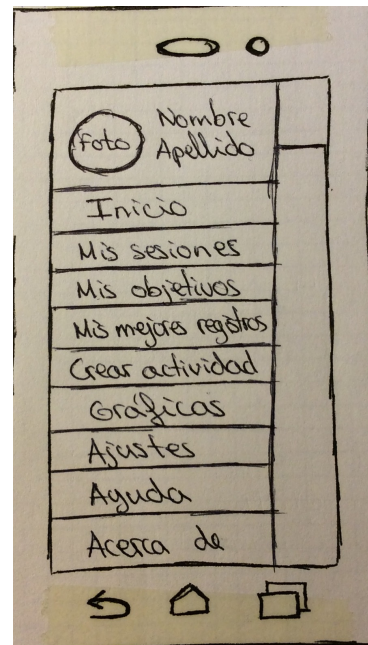 Foto
Nombre
Apellido
Inicio
Mis sesiones
Mis objetivos
Mis mejores registros
Crear actividad
Gráficas
Ajustes
Ayuda
Acerca de